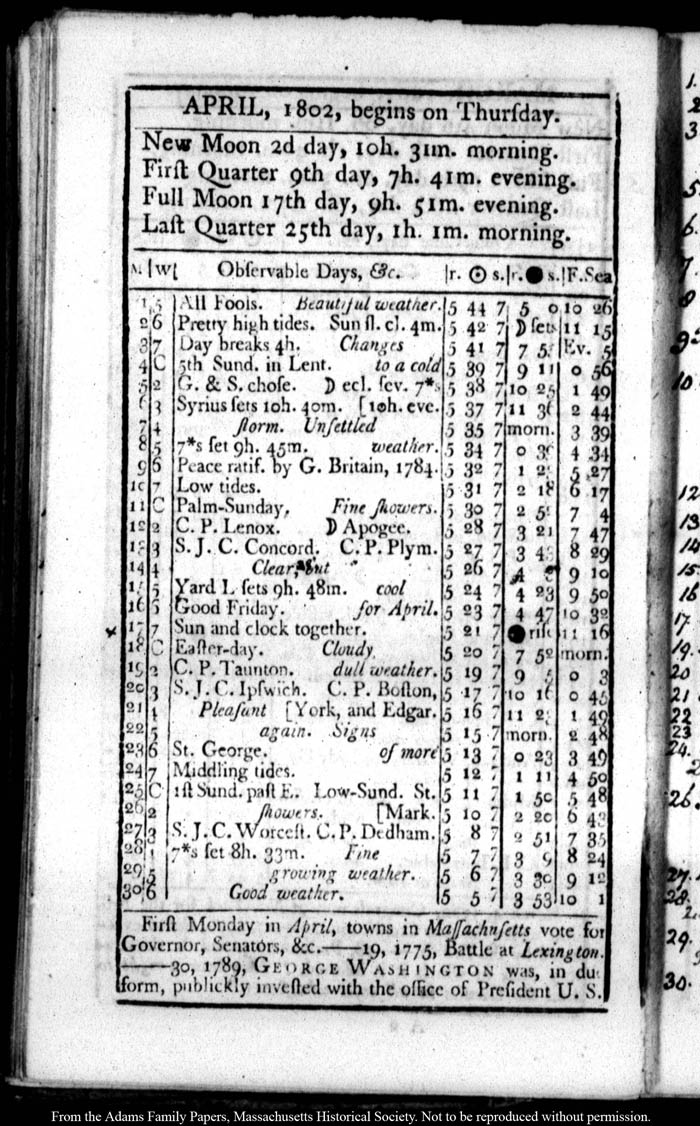 APRIL, 1802, begins on Thurſday.
New Moon 2d day, 10h. 31m. morning.
Firſt Quarter 9th day, 7h. 41m. evening.
Full Moon 17th day, 9h. 51m. evening.
Laſt Quarter 25th day, 1h. 1m. morning.
M|W| Obſervable Days, &c. |r. ☉ s.|r. ● s.|F.Sea
1 5 All Fools. Beautiful weather. 5 44 7 5 0 10 26
2 6 Pretty high tides. Sun ſl. cl. 4m. 5 42 7 D ſets 11 15
3 7 Day breaks 4h. Changes 5 41 7 7 Ev. 5
4 C 5th Sund. in Lent. to a cold 5 39 7 9 11 0 56
5 2 G. & S. choſe. D ecl. ſev. 7*s 5 38 7 10 25 1 49
6 3 Syrius ſets 10h. 40m. [10h. eve. 5 37 7 11 36 2 44
7 4 ſtorm. Unſettled 5 35 7 morn. 3 39
8 5 7*s ſet 9h. 45m. weather. 5 34 7 0 4 34
9 6 Peace ratif. by G. Britain, 1784. 5 32 7 1 5 27
10 7 Low tides. 5 31 7 2 18 6 17
11 C Palm-Sunday. Fine ſhowers. 5 30 7 2 7 4
12 2 C. P. Lenox. D Apogee. 5 28 7 3 21 7 47
13 3 S. J. C. Concord. C. P. Plym. 5 27 7 3 8 29
14 4 Clear, but 5 26 7 9 10
15 5 Yard L ſets 9h. 48m. cool 5 24 7 4 23 9 50
16 6 Good Friday. for April. 5 23 7 4 47 10 32
17 7 Sun and clock together. 5 21 7 ● riſe 11 16
18 C Eaſter-day. Cloudy 5 20 7 7 52 morn.
19 2 C. P. Taunton. dull weather. 5 19 7 9 5 0 3
20 3 S. J. C. Ipſwich. C. P. Boſton, 5 17 7 10 16 0 45
21 4 Pleaſant [York, and Edgar. 5 16 7 11 1 49
22 5 again. Signs 5 15 7 morn. 2 48
23 6 St. George. of more 5 13 7 0 23 3 49
24 7 Middling tides. 5 12 7 1 11 4 50
25 C 1ſt Sund. paſt E. Low-Sund. St. 5 11 7 1 50 5 48
26 2 ſhowers. [Mark. 5 10 7 2 20 6 43
27 3 S. J. C. Worceſt. C. P. Dedham. 5 8 7 2 51 7 35
28 7*s ſet 8h. 33m. Fine 5 7 7 3 9 8 24
29 5 growing weather. 5 6 7 3 30 9 12
30 6 Good weather. 5 5 7 3 53 10 1
Firſt Monday in April, towns in Maſſachuſetts vote for
Governor, Senators, &c.——19, 1775, Battle at Lexington.
——30, 1789, GEORGE WASHINGTON was, in due
form, publickly inveſted with the office of Preſident U. S.
1.
2
3
5.
6.
7
8
9
10
12
13
14
15
16
17
19.
20
21
22
23
24.
26.
27.
28.
29.
30.
From the Adams Family Papers, Massachusetts Historical Society. Not to be reproduced without permission.